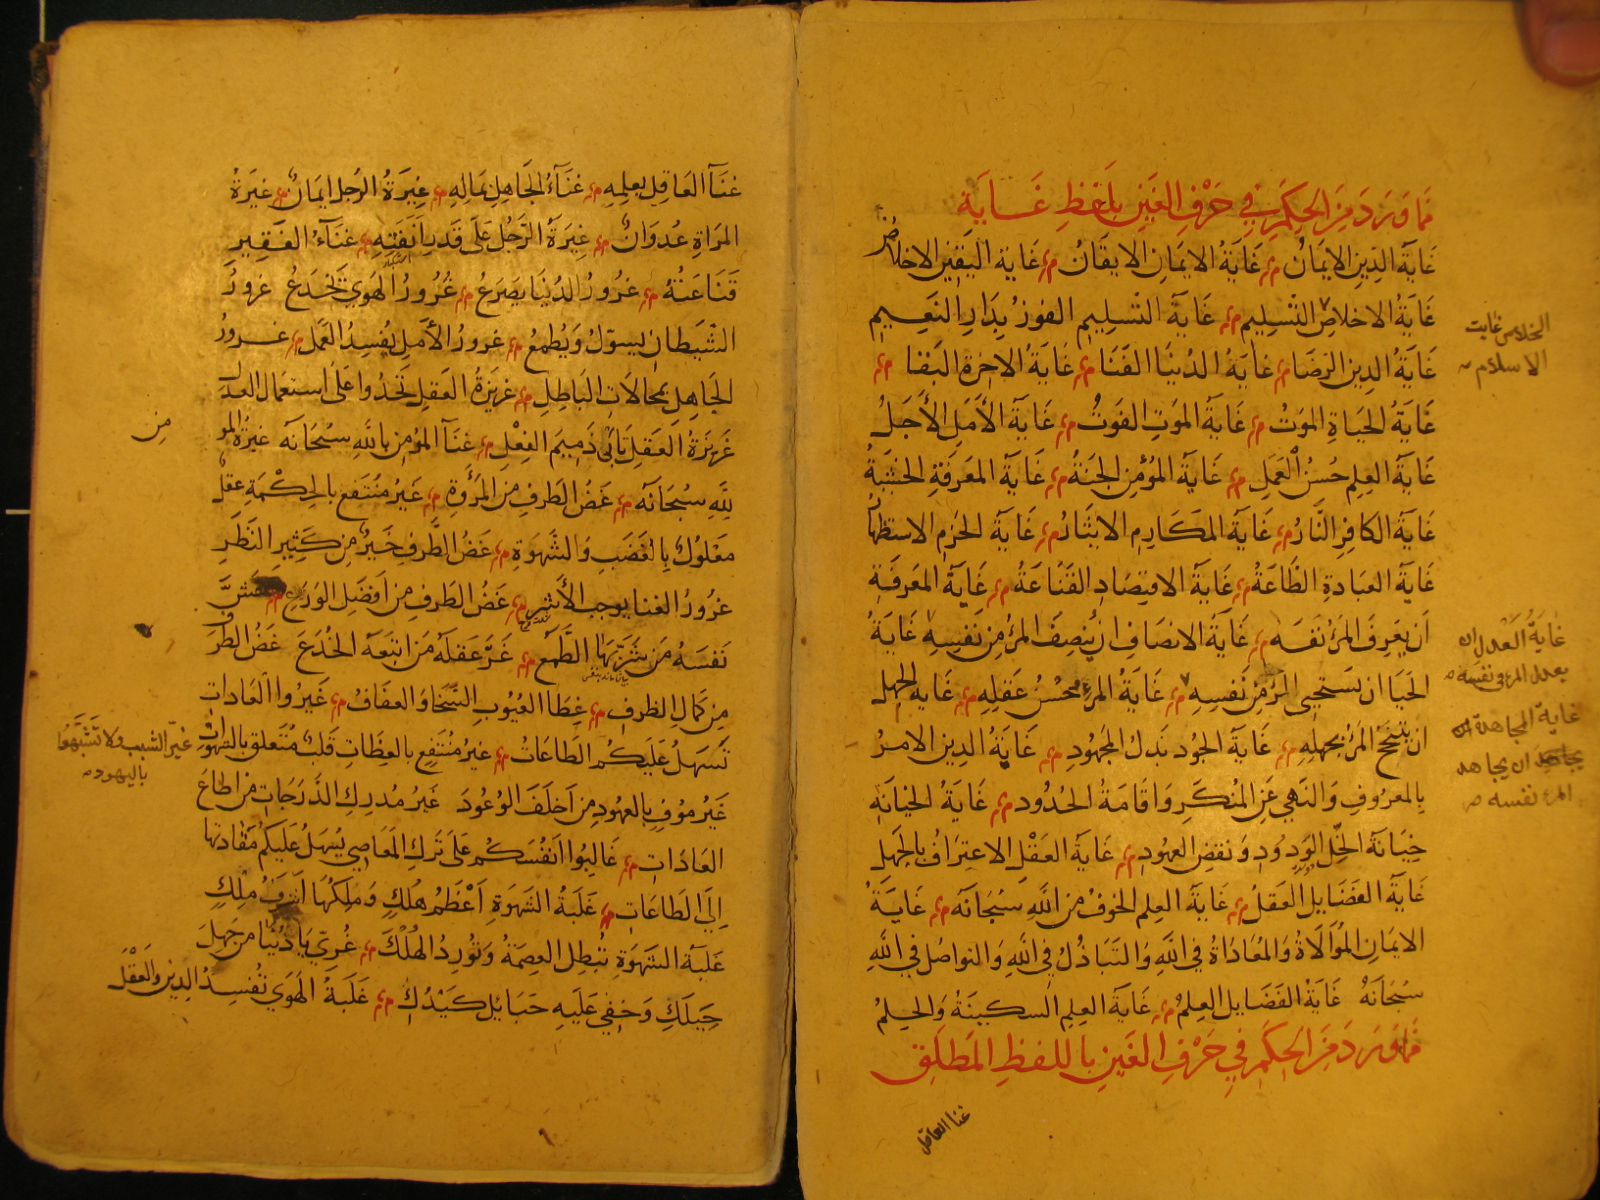 مما ورد من الحكم في حرف الغين بلفظ غاية
غَايَةُ الدِّينِ الإيمَانُ غَايَةُ الايمَانِ الايقَانُ غاية اليقين الاخلاص
غَايَةُ الاخلاصِ التَّسلِيم غَايَة التّسلِيم الفوزُ بِدَارِ النَّعِيمِ
غَايَةُ الدِين الرضَا غايَةُ الدُنيَا الفَنَا غَايَةُ الاخِرَة البَقَا
غَايَةُ الحَيَاةِ المَوتُ غَايَةُ المَوتِ الفَوتُ غَايَة الأَمَلِ الأَجَلُ
غَايَةُ العِلِم حُسنُ العَمَلِ غَايَة المُؤمِن الجنَةُ غَايَة المَعرفَةِ الخشيَةُ
غَايَة الكافِر النَّارُ غَايَة المكَارِم الايثَار غَايَة الحَزمِ الاستظهَار
غَايَة العبَادةِ الطَاعَة غَايَة الاقتِصَادِ القَنَاعَة غَايَة المَعرفَةِ
اَن يَعرِفَ المَرءُ نَفسَه غَايَة الانصَافِ ان يُنصِفَ المَرءُ مِن نَفسِهِ غَايَةُ
الحَيَا ان يَستَحيِيَ المَرءُ مِن نَفسِهِ غَايَة المَرءِ حُسنُ عَقلِهِ غَايَة الجهل
ان يتبَجّحَ المَرءُ بجهلِهِ غَايَة الجُود بَذلُ المَجهُودِ غَايَةُ الدِين الامرُ
بِالمعرُوفِ وَالنَّهي عَنِ المُنكَرِ وَاقَامَةُ الحُدُود غَايَةُ الخيَانَةِ
خِيَانَة الخِّل الوَدُودِ وَنقضِ العهُود غَايَة العَقلِ الاعتِرَافُ بِالجَهلِ
غَايَةُ الفَضَايِل العَقلُ غَايَة العِلِم الخوفُ مِن اللَّهِ سُبحَانَه غَايَةُ
الايمَانِ المُوَالَاةُ وَالمُعَادَاةُ فِي اللَّهِ وَالتَبَاذُلُ فِي اللَّهِ وَالتواصُل فِي اللَّهِ
سُبحَانَهُ غَايَةُ الفَضَايِل العِلمُ غَايَة العِلِم السكِينَةُ وَالحِلمُ
مما ورد من الحكم في حَرفِ الغَينِ باللفظِ المَطلَق
غنا العاقل
الاخلاص غايت
الاسلام
غايةُ العَدل ان
يعدل المرء فى نفسه
غاية المجاهدة ان
يجاهد ان يجاهد
المرء نفسه
غنَآ العَاقِلِ بِعِلمِهِ غنَآءُ الجَاهِلِ بمَالِهِ غَيرَةُ الرَجلِ ايمَانٌ غيرَةُ
المَرأةِ عُدوَانٌ غيرَةُ الرَّجُلِ عَلَى قَدرِ اَنَفَتِهِ غِنَآءُ الفَقِيرِ
قَنَاعَتُهُ غرُورُ الدُنيَا يَصرَعُ غُرُورُ الهَوى يَخدَعُ غرورُ
الشَّيطَانِ يسوّلُ وَيُطمعُ غرورُ الأَمَلِ يُفسِدُ العَمَل غرورُ
الجَاهِلِ بمحَالَاتِ البَاطِلِ غَريزَةُ العَقلِ تَحدُوا عَلَى استعمَالِ العدل
غَرِيزَةُ العَقلِ تَأبَى ذَمِيمَ الفِعْلِ غنَآ المُؤمِن بِاللَّهِ سبحَانَه غيرةُ المؤ
من
لِلّهِ سبحَانَه غَضُ الطَرفِ مِنَ المُرُوّة غَيرُ مُنتَفِع بِالحِكمَةِ عقلٌ
مَغلُولٌ بِالغَضَبِ وَالشّهوَةِ غَضُ الطَّرفِ خَيرٌ مِن كَثِيرِ النَّظَرِ
غرُورُ الغنا يوجب الأشر غَضُ الطَرفِ مِن اَفضَلِ الوَرَع غشَّ
نَفسَهُ مَن شَرَّبَهَا الطَّمَع غَرَّ عَقلَهُ مَن اتبَعَهُ الخُدَعَ غَضُ الطَرف
مِن كَمَالِ الظرف غِطَا العُيُوبِ السَّخَا وَالعفَاف غَيرُوا العَادَات
تَسهَل عَلَيكُم الطَاعَاتُ غيرُ مُنتَفِعٍ بِالعِظَاتِ قَلبٌ مُتَعَلق بالشهوَات
غَيّر الشيب ولا تشَبَّهُوا
باليهود
غَيرُ موُفٍ بِالعهُودِ مِن اَخلَفَ الوُعُودَ غَيرُ مُدرِكِ الدَرَجَاتِ مَن اطَاعَ
العَادَاتِ غَالِبُوا اَنفُسَكُم عَلَى تَركِ المَعَاصِي يَسهُلُ عَلَيكم مَقَادتها
اِلَى الطَاعَاتِ غَلَبَةُ الشَهوَةِ اَعْظَمُ هُلكٍ وَمِلكُهَا اَشرَفُ مُلكٍ
غَلَبَة الشهوَةِ تُبطِل العِصمَةُ وَتُورِدُ الهُلْكَ غُرِّي يَا دُنيَا مَن جَهِلَ
حِيَلَكِ وَخَفِي عَلَيهِ حَبَايِل كَيدِكِ غَلَبَةُ الهَوَى تفسِدُ الدِين وَالعَقلَ